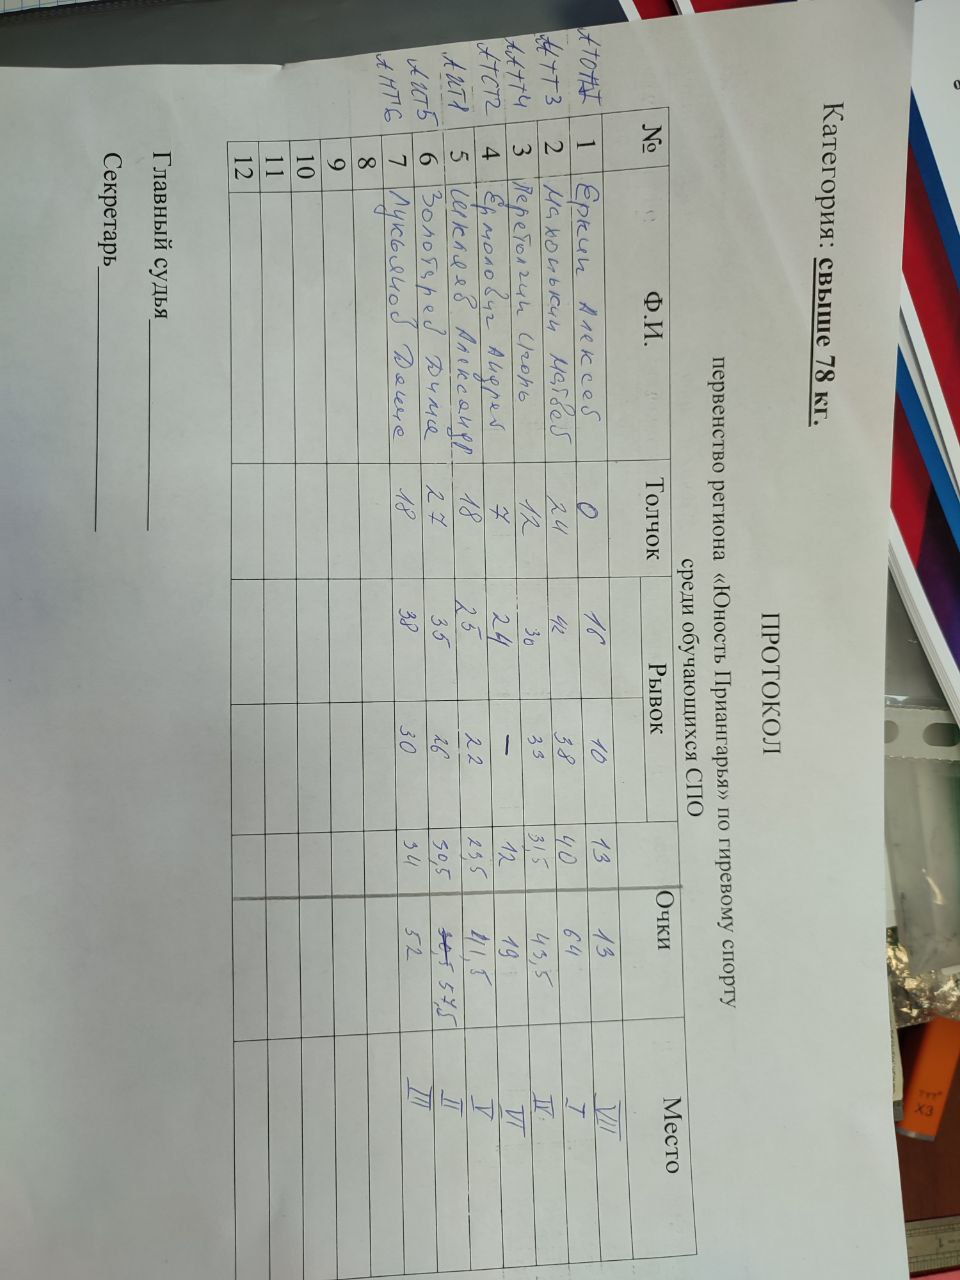 Категория: свыше 78 кг.
ПРОТОКОЛ
первенство региона «Юность Приангарья» по гиревому спорту
среди обучающихся СПО
№ Ф.И. Толчок Рывок Очки Место
1 Еркин Алексей 0 16 10 13 13 VII
МТТ3 2 Махонькин Матвей 24 42 38 40 64 I
ААТТ4 3 Перетолчин Игорь 12 30 33 31,5 43,5 IV
АТСТ2 4 Ермолович Андрей 7 24 – 12 19 VI
АИТ1 5 Шкляев Александр 18 25 22 23,5 41,5 V
АИТ5 6 Золотарев Дима 27 35 26 30,5 57,5 II
АНТ6 7 Лукьянов Данила 18 38 30 34 52 III
8
9
10
11
12
Главный судья
Секретарь